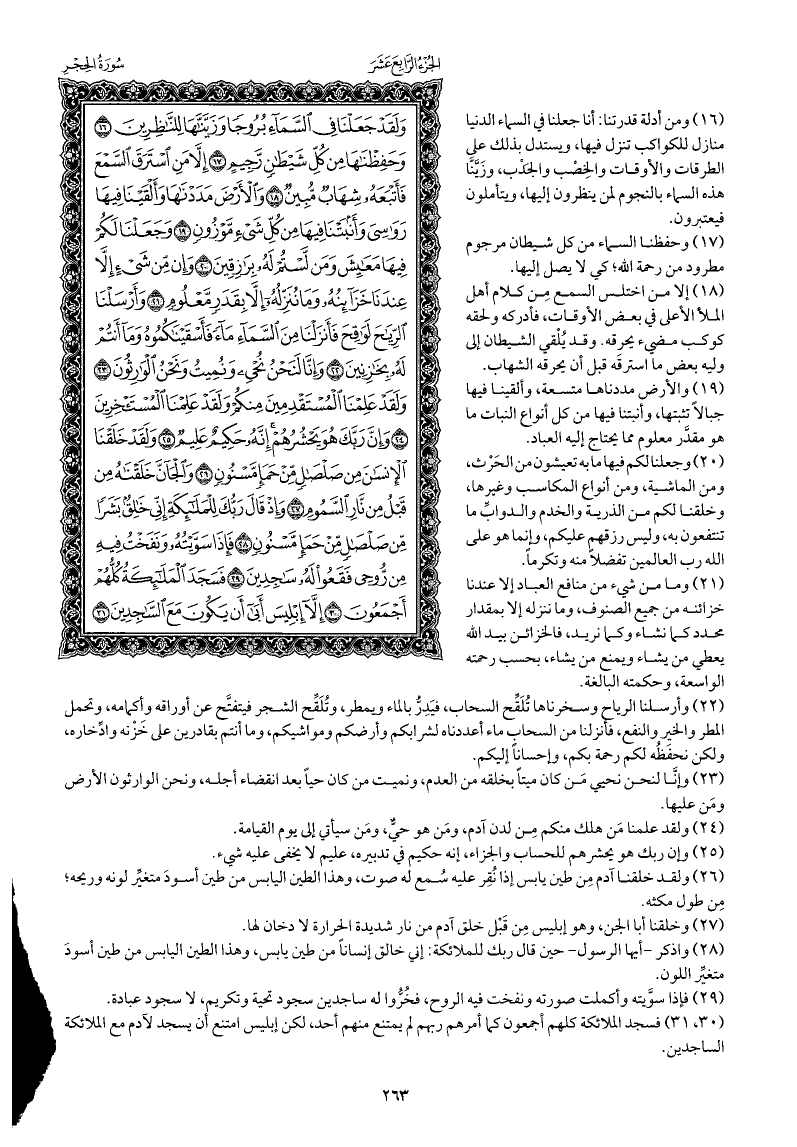 الجزء الرابع عشر
سورة الحجر
وَلَقَدْ جَعَلْنَا فِي ٱلسَّمَآءِ بُرُوجًا وَزَيَّنَّٰهَا لِلنَّٰظِرِينَ ١٦
وَحَفِظْنَٰهَا مِن كُلِّ شَيْطَٰنٍ رَّجِيمٍ ١٧ إِلَّا مَنِ ٱسْتَرَقَ ٱلسَّمْعَ
فَأَتْبَعَهُۥ شِهَابٌ مُّبِينٌ ١٨ وَٱلْأَرْضَ مَدَدْنَٰهَا وَأَلْقَيْنَا فِيهَا
رَوَٰسِيَ وَأَنۢبَتْنَا فِيهَا مِن كُلِّ شَيْءٍ مَّوْزُونٍ ١٩ وَجَعَلْنَا لَكُمْ
فِيهَا مَعَٰيِشَ وَمَن لَّسْتُمْ لَهُۥ بِرَٰزِقِينَ ٢٠ وَإِن مِّن شَيْءٍ إِلَّا
عِندَنَا خَزَآئِنُهُۥ وَمَا نُنَزِّلُهُۥٓ إِلَّا بِقَدَرٍ مَّعْلُومٍ ٢١ وَأَرْسَلْنَا
ٱلرِّيَٰحَ لَوَٰقِحَ فَأَنزَلْنَا مِنَ ٱلسَّمَآءِ مَآءً فَأَسْقَيْنَٰكُمُوهُ وَمَآ أَنتُمْ
لَهُۥ بِخَٰزِنِينَ ٢٢ وَإِنَّا لَنَحْنُ نُحْيِۦ وَنُمِيتُ وَنَحْنُ ٱلْوَٰرِثُونَ ٢٣
وَلَقَدْ عَلِمْنَا ٱلْمُسْتَقْدِمِينَ مِنكُمْ وَلَقَدْ عَلِمْنَا ٱلْمُسْتَـْٔخِرِينَ
٢٤ وَإِنَّ رَبَّكَ هُوَ يَحْشُرُهُمْ ۚ إِنَّهُۥ حَكِيمٌ عَلِيمٌ ٢٥ وَلَقَدْ خَلَقْنَا
ٱلْإِنسَٰنَ مِن صَلْصَٰلٍ مِّنْ حَمَإٍ مَّسْنُونٍ ٢٦ وَٱلْجَآنَّ خَلَقْنَٰهُ مِن
قَبْلُ مِن نَّارِ ٱلسَّمُومِ ٢٧ وَإِذْ قَالَ رَبُّكَ لِلْمَلَٰٓئِكَةِ إِنِّي خَٰلِقٌۢ بَشَرًا
مِّن صَلْصَٰلٍ مِّنْ حَمَإٍ مَّسْنُونٍ ٢٨ فَإِذَا سَوَّيْتُهُۥ وَنَفَخْتُ فِيهِ
مِن رُّوحِي فَقَعُوا۟ لَهُۥ سَٰجِدِينَ ٢٩ فَسَجَدَ ٱلْمَلَٰٓئِكَةُ كُلُّهُمْ
أَجْمَعُونَ ٣٠ إِلَّآ إِبْلِيسَ أَبَىٰٓ أَن يَكُونَ مَعَ ٱلسَّٰجِدِينَ ٣١
(١٦) ومن أدلة قدرتنا: أنا جعلنا في السماء الدنيا
منازل للكواكب تنزل فيها، ويستدل بذلك على
الطرقات والأوقات والخصْب والجَدْب، وزَيَّنَّا
هذه السماء بالنجوم لمن ينظرون إليها، ويتأملون
فيعتبرون.
(١٧) وحفظنا السماء من كل شيطان مرجوم
مطرود من رحمة الله؛ كي لا يصل إليها.
(١٨) إلا من اختلس السمع مِن كلام أهل
الملأ الأعلى في بعض الأوقات، فأدركه ولحقه
كوكب مضيء يحرقه. وقد يُلْقي الشيطان إلى
وليه بعض ما استرقَه قبل أن يحرقه الشهاب.
(١٩) والأرض مددناها متسعة، وألقينا فيها
جبالاً تثبتها، وأنبتنا فيها من كل أنواع النبات ما
هو مقدَّر معلوم مما يحتاج إليه العباد.
(٢٠) وجعلنا لكم فيها ما به تعيشون من الحَرْث،
ومن الماشية، ومن أنواع المكاسب وغيرها،
وخلقنا لكم من الذرية والخدم والدوابِّ ما
تنتفعون به، وليس رزقهم عليكم، وإنما هو على
الله رب العالمين تفضلاً منه وتكرماً.
(٢١) وما من شيء من منافع العباد إلا عندنا
خزائنه من جميع الصنوف، وما ننزله إلا بمقدار
محدد كما نشاء وكما نريد، فالخزائن بيد الله
يعطي من يشاء ويمنع من يشاء، بحسب رحمته
الواسعة، وحكمته البالغة.
(٢٢) وأرسلنا الرياح وسخرناها تُلَقِّح السحاب، فيَدِرُّ بالماء ويمطر، وتُلَقِّح الشجر فيتفتَّح عن أوراقه وأكمامه، وتحمل
المطر والخير والنفع، فأنزلنا من السحاب ماء أعددناه لشرابكم وأرضكم ومواشيكم، وما أنتم بقادرين على خَزْنه وادِّخاره،
ولكن نحفَظُه لكم رحمة بكم، وإحساناً إليكم.
(٢٣) وإنَّا لنحن نحيي مَن كان ميتاً بخلقه من العدم، ونميت من كان حياً بعد انقضاء أجله، ونحن الوارثون الأرض
ومَن عليها.
(٢٤) ولقد علمنا مَن هلك منكم مِن لدن آدم، ومَن هو حيٌّ، ومَن سيأتي إلى يوم القيامة.
(٢٥) وإن ربك هو يحشرهم للحساب والجزاء، إنه حكيم في تدبيره، عليم لا يخفى عليه شيء.
(٢٦) ولقد خلقنا آدم مِن طين يابس إذا نُقِر عليه سُمع له صوت، وهذا الطين اليابس من طين أسودَ متغيِّر لونه وريحه؛
مِن طول مكثه.
(٢٧) وخلقنا أبا الجن، وهو إبليس مِن قَبْل خلق آدم من نار شديدة الحرارة لا دخان لها.
(٢٨) واذكر -أيها الرسول- حين قال ربك للملائكة: إني خالق إنساناً من طين يابس، وهذا الطين اليابس من طين أسودَ
متغيِّر اللون.
(٢٩) فإذا سوَّيته وأكملت صورته ونفخت فيه الروح، فخُرُّوا له ساجدين سجود تحية وتكريم، لا سجود عبادة.
(٣٠، ٣١) فسجد الملائكة كلهم أجمعون كما أمرهم ربهم لم يمتنع منهم أحد، لكن إبليس امتنع أن يسجد لآدم مع الملائكة
الساجدين.
٢٦٣